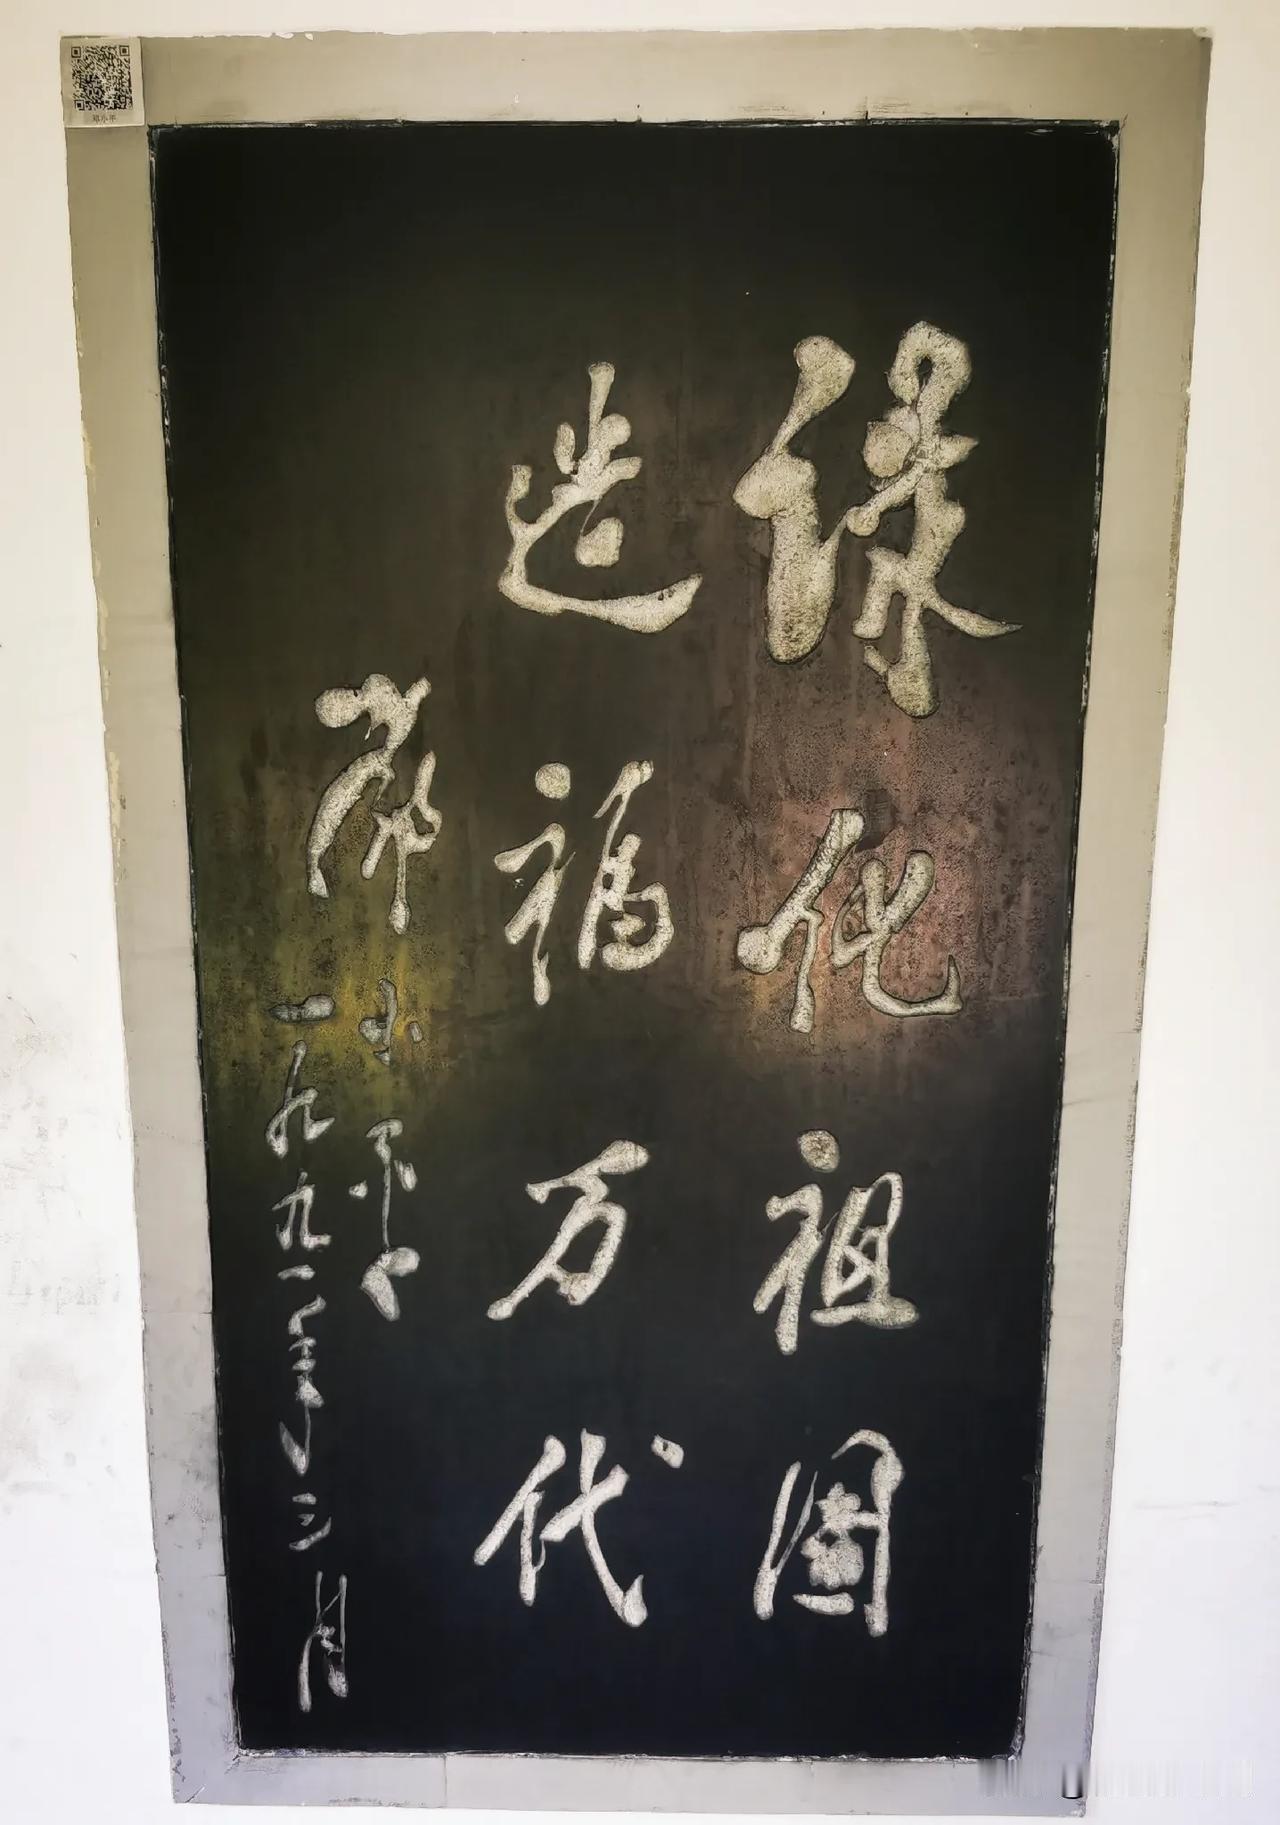 绿化祖国
造福万代
邓小平
一九九一年三月
邓小平